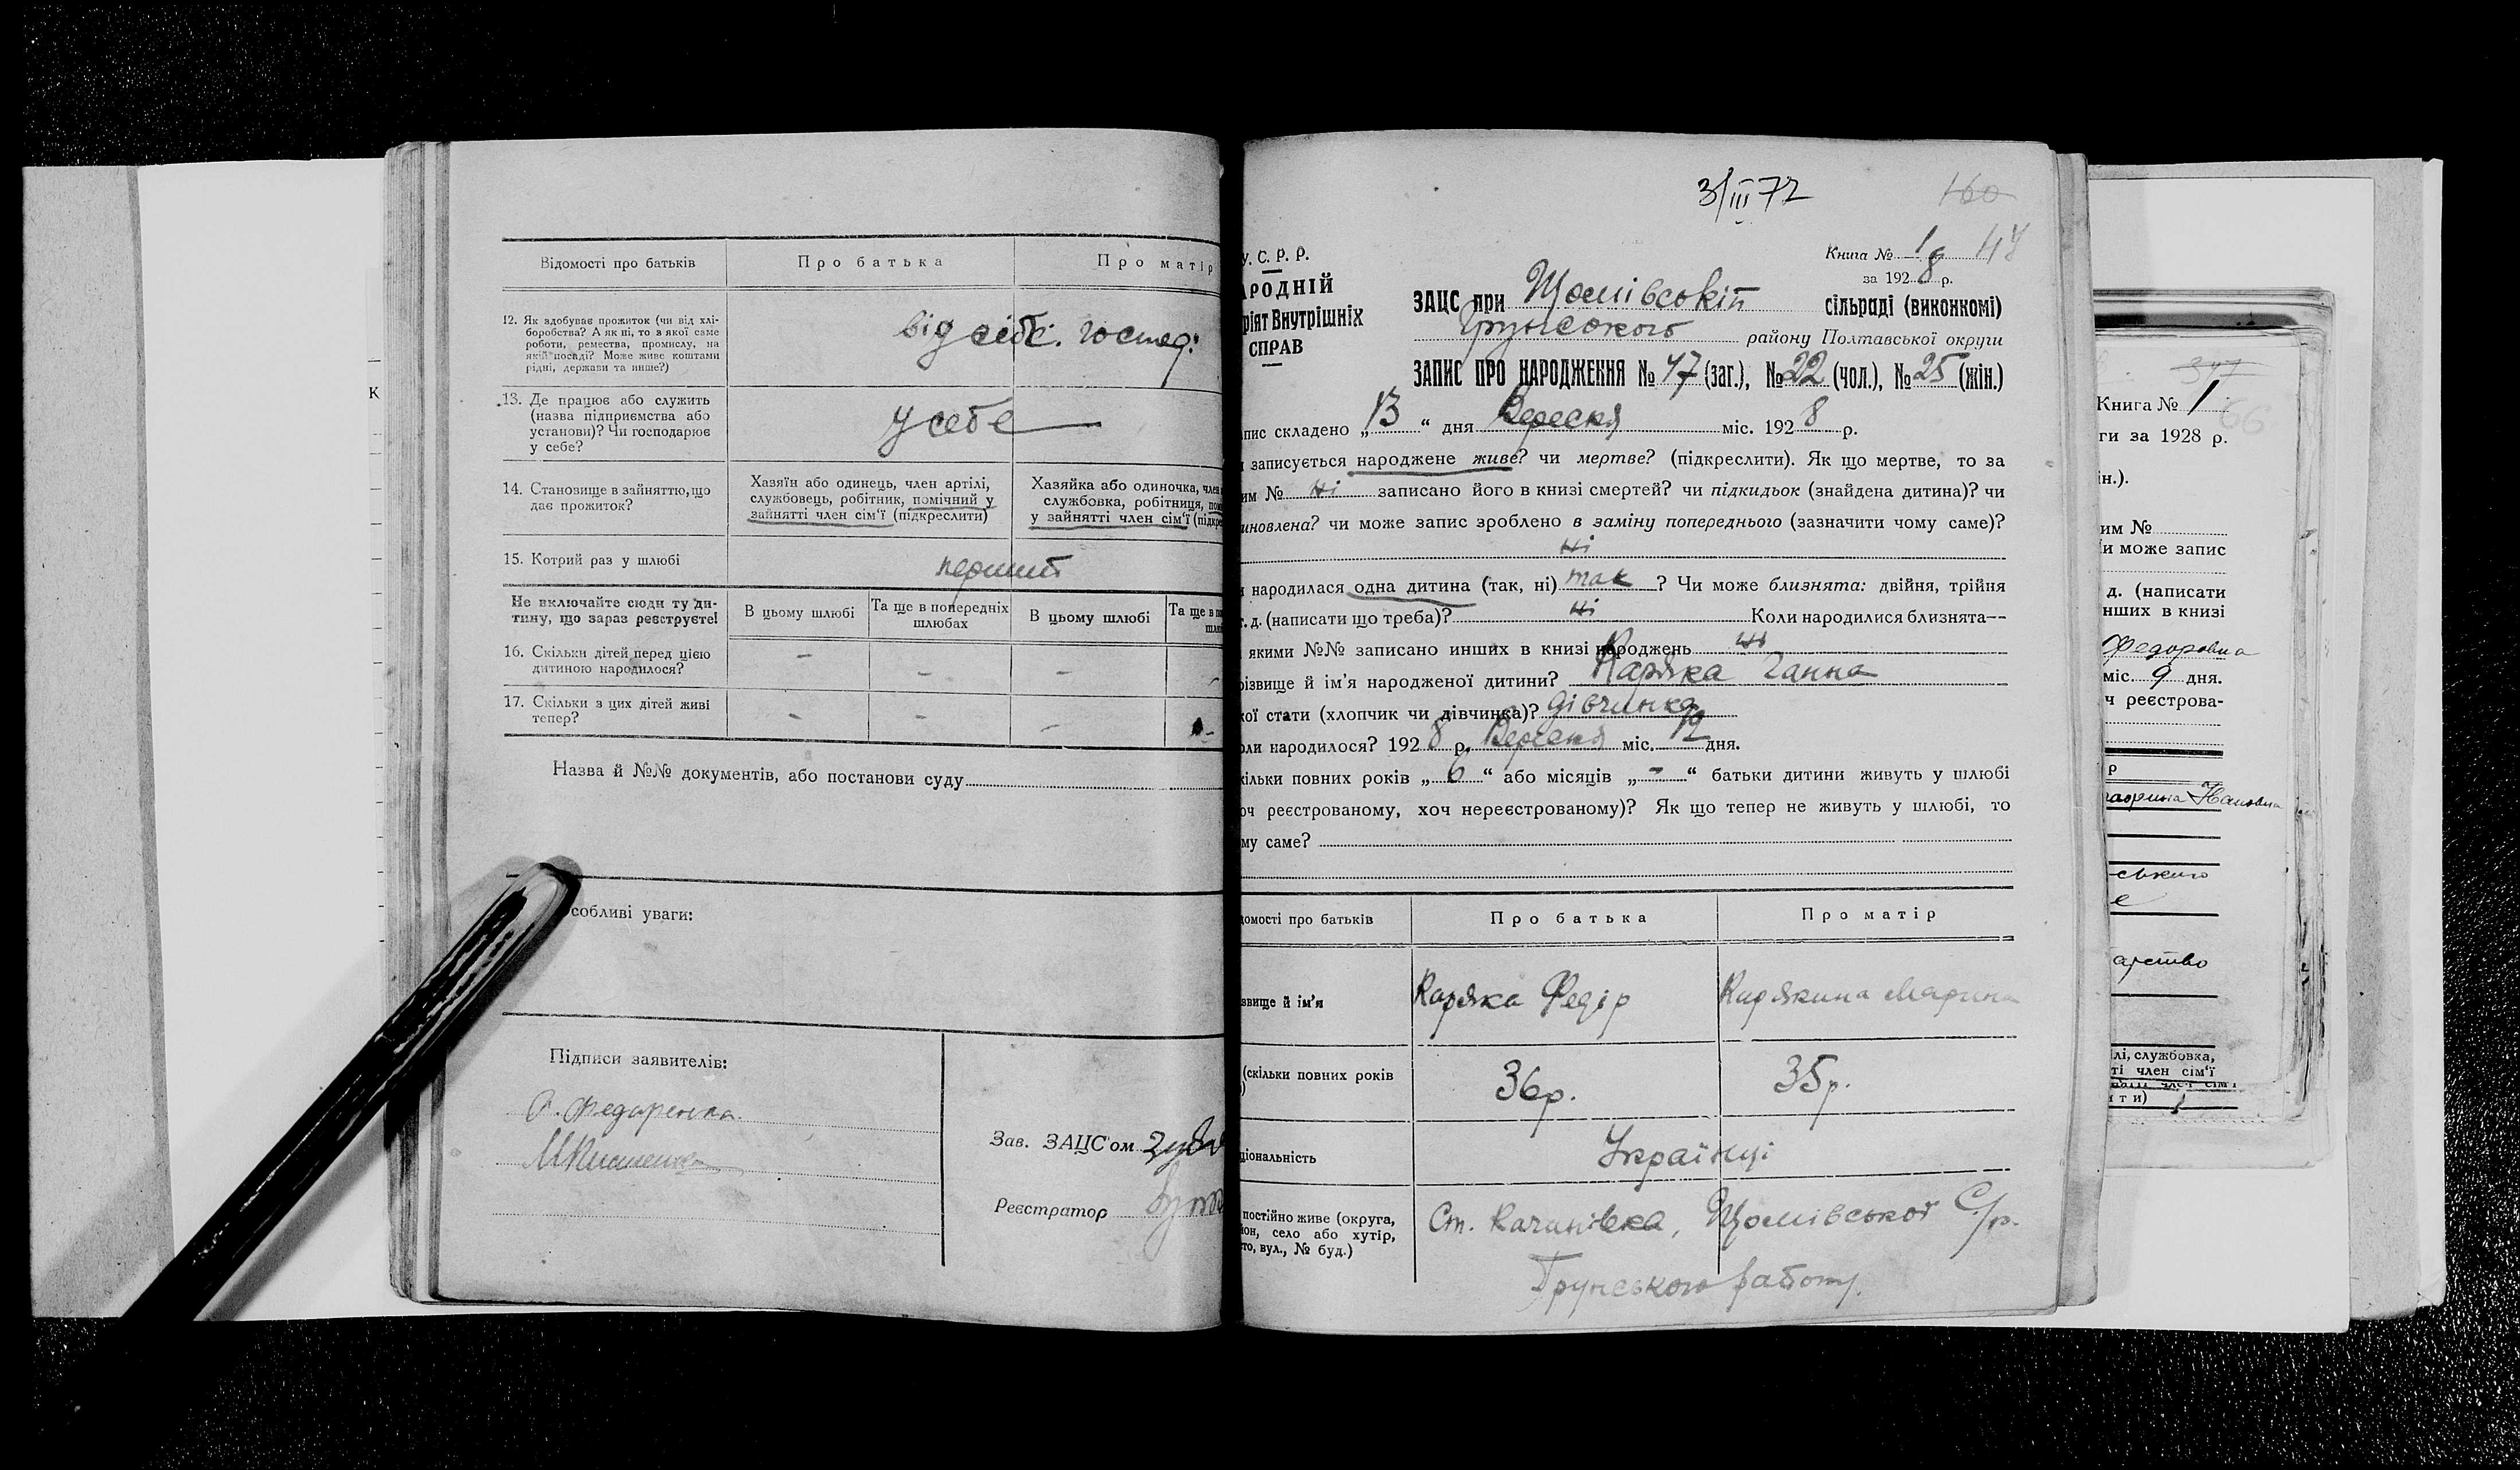 Відомості про батьків
Про батька
Про матір
12. Як здобуває прожиток (чи від хлі-
боробства? А як ні, то з якої саме
роботи, ремества, промислу, на
якій посаді? Може живе коштами
рідні, держави та инше?)
від сільс. господ.
13. Де працює або служить
(назва підприємства або
установи)? Чи господарює
у себе?
У себе
14. Становище в зайняттю, що
дає прожиток?
Хазяїн або одинець, член артілі,
службовець, робітник, помічний у
зайнятті член сім'ї (підкреслити)
Хазяйка або одиночка, член
службовка, робітниця, пом
у зайнятті член сім'ї (підкре
15. Котрий раз у шлюбі
перший
Не включайте сюди ту ди-
тину, що зараз реєструєте!
В цьому шлюбі
Та ще в попередніх
шлюбах
В цьому шлюбі
Та ще в по
шлю
16. Скільки дітей перед цією
дитиною народилося?
- - - -
17. Скільки з цих дітей живі
тепер?
- - - -
Назва й №№ документів, або постанови суду
собливі уваги:
Підписи заявителів:
Зав. ЗАЦС'ом
Реєстратор
3/III 72
160
У. С. Р. Р.
АРОДНІЙ
ріят Внутрішніх
СПРАВ
Книга № 1 47
за 1928 р.
ЗАЦС при Щомівській сільраді (виконкомі)
Грунського району Полтавської округи
ЗАПИС ПРО НАРОДЖЕННЯ № 47 (заг.), № 22 (чол.), № 25 (жін.)
пис складено „13“ дня Вересня міс. 1928 р.
записується народжене живе? чи мертве? (підкреслити). Як що мертве, то за
им № ні записано його в книзі смертей? чи підкидьок (знайдена дитина)? чи
иновлена? чи може запис зроблено в заміну попереднього (зазначити чому саме)?
ні
народилася одна дитина (так, ні) так? Чи може близнята: двійня, трійня
т. д. (написати що треба)? ні Коли народилися близнята—
якими №№ записано инших в книзі народжень ні
різвище й ім'я народженої дитини? Каряка Ганна
кої стати (хлопчик чи дівчинка)? дівчинка
оли народилося? 1928 р. Вересня міс. 12 дня.
кільки повних років „6“ або місяців „-“ батьки дитини живуть у шлюбі
оч реєстрованому, хоч нереєстрованому)? Як що тепер не живуть у шлюбі, то
му саме?
домості про батьків
Про батька
Про матір
звище й ім'я
Каряка Федір
Карякина Марина
(скільки повних років
36р.
35р.
ціональність
Українці
постійно живе (округа,
йон, село або хутір,
сто, вул., № буд.)
Ст. Качанівка, Щомівської С/р.
Грунського району.
К
347
Книга № 1
66
ги за 1928 р.
ін.).
им №
Чи може запис
д. (написати
нших в книзі
Федоровна
міс. 9 дня.
ч реєстрова-
р
Ивановна
ського
е
арство
лі, службовка,
ті член сім'ї
ити)